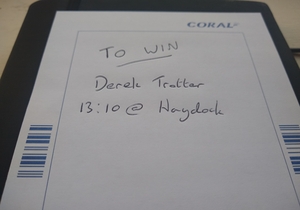 CORAL
TO WIN
Derek Trotter
13:10 @ Haydock